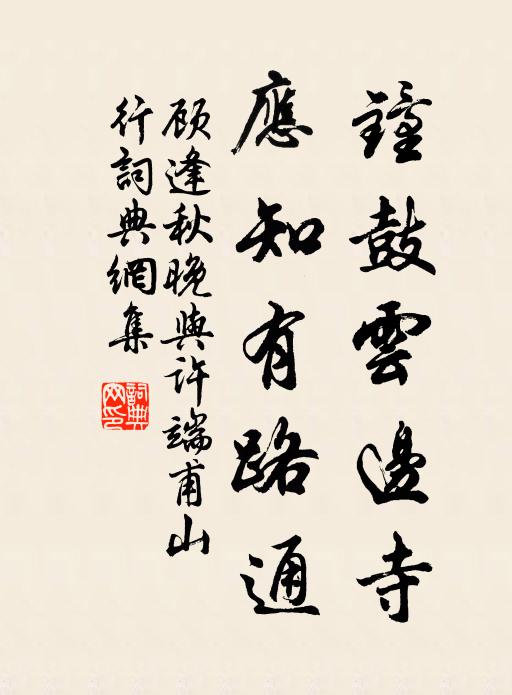 鐘鼓雲邊寺
應知有路通
顾逢秋晚與许端甫山
行詞典網集
詞典
网印